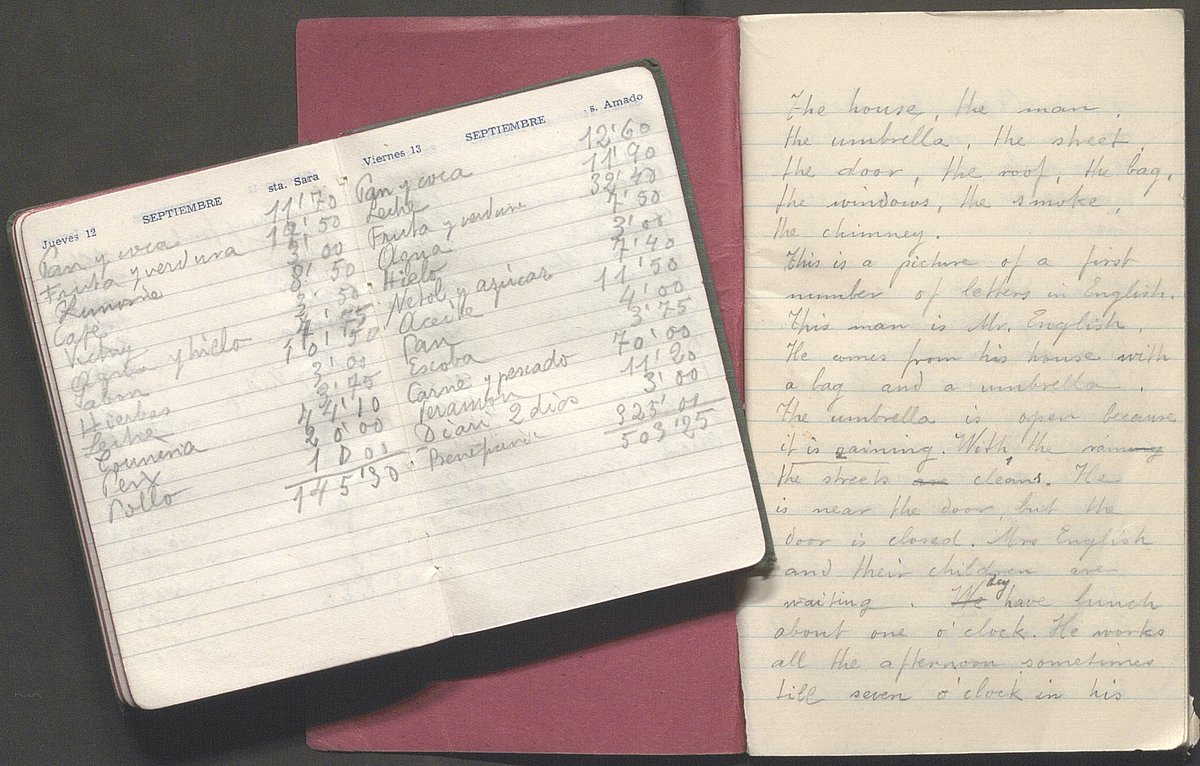 Jueves 12 SEPTIEMBRE sta. Sara
Pan y coca 11'70
Fruta y verdura 12'50
5'00
Café 8'50
Vichy 3'50
Agua y hielo 4'75
Jabon 10'50
Hierbas 3'00
Leche 3'75
44'10
20'00
Pollo
145'30
Viernes 13 SEPTIEMBRE s. Amado
Pan y coca 12'60
Leche 11'90
Fruta y verdura 39'40
Agua 4'50
Hielo 3'00
Netol y azúcar 7'40
Aceite 11'50
Pan 4'00
Escoba 3'75
Carne y pescado 70'00
11'20
2 dias 3'00
325'00
503'25
The house, the man,
the umbrella, the street,
the door, the roof, the bag,
the windows, the smoke,
the chimney.
This is a picture of a first
number of letters in English.
This man is Mr. English.
He comes from his house with
a bag and a umbrella.
The umbrella is open because
it is raining. With the raining
the streets are cleans. He
is near the door, but the
door is closed. Mrs English
and their children are
waiting. We they have lunch
about one o'clock. He works
all the afternoon sometimes
till seven o'clock in his